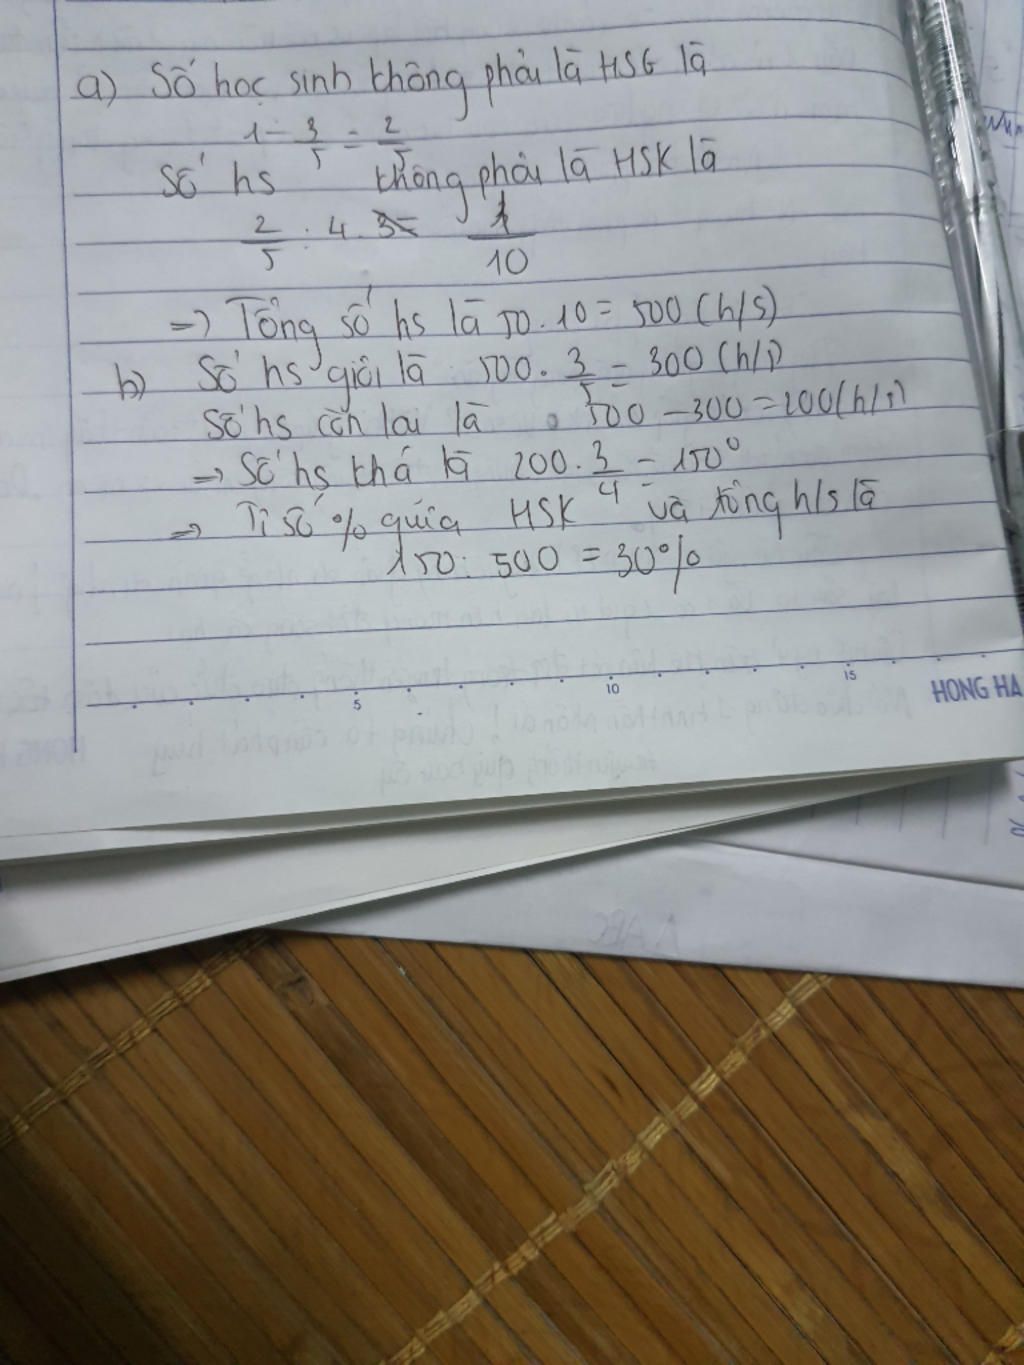 a) Số học sinh không phải là HSG là
1 - 3/5 = 2/5
Số hs không phải là HSK là
2/5 : 4 . 3 = 1/10
=> Tổng số hs là 50 . 10 = 500 (h/s)
b) Số hs giỏi là 500 . 3/5 = 300 (h/s)
Số hs còn lại là 500 - 300 = 200 (h/s)
=> Số hs khá là 200 . 3/4 = 150
=> Tỉ số % giữa HSK và tổng h/s là
150 : 500 = 30%
5 10 15
HONG HA